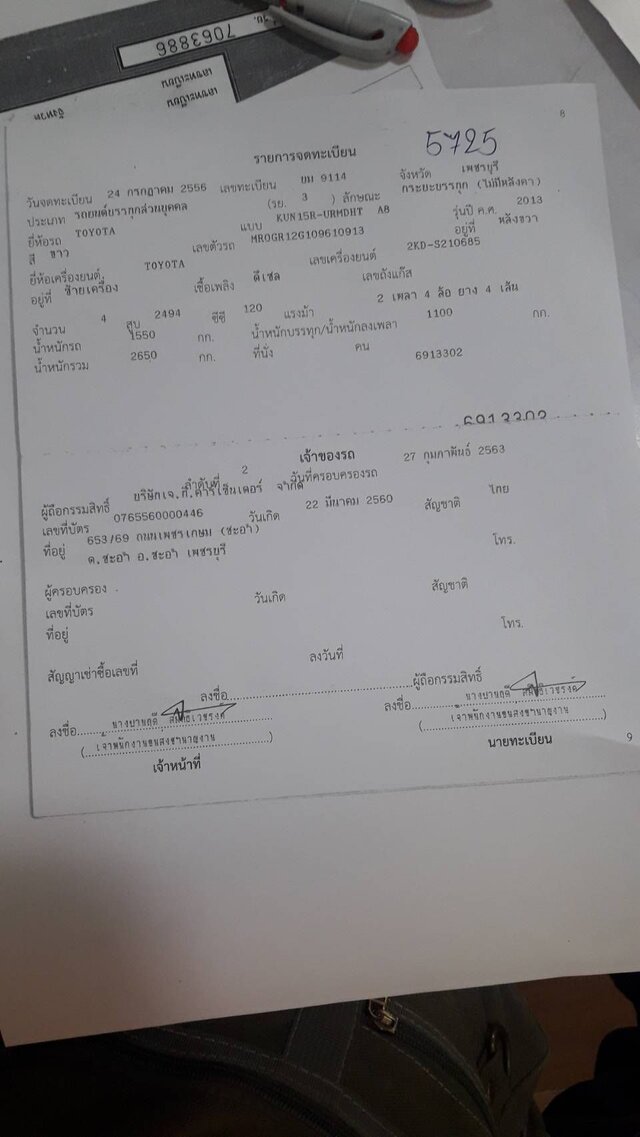 7063886
เลขทะเบียน
เลขทะเบียน
จังหวัด
8
5725
รายการจดทะเบียน
วันจดทะเบียน 24 กรกฎาคม 2556 เลขทะเบียน ยม 9114 จังหวัด เพชรบุรี
ประเภท รถยนต์บรรทุกส่วนบุคคล (รย. 3 ) ลักษณะ กระบะบรรทุก (ไม่มีหลังคา)
ยี่ห้อรถ TOYOTA แบบ KUN15R-URMDHT A8 รุ่นปี ค.ศ. 2013
สี ขาว เลขตัวรถ MR0GR12G109610913 อยู่ที่ หลังขวา
ยี่ห้อเครื่องยนต์ TOYOTA เลขเครื่องยนต์ 2KD-S210685
อยู่ที่ ซ้ายเครื่อง เชื้อเพลิง ดีเซล เลขถังแก๊ส
จำนวน 4 สูบ 2494 ซีซี 120 แรงม้า 2 เพลา 4 ล้อ ยาง 4 เส้น
น้ำหนักรถ 1550 กก. น้ำหนักบรรทุก/น้ำหนักลงเพลา 1100 กก.
น้ำหนักรวม 2650 กก. ที่นั่ง คน 6913302
6913302
เจ้าของรถ
ลำดับที่ 2 วันที่ครอบครองรถ 27 กุมภาพันธ์ 2563
ผู้ถือกรรมสิทธิ์ บริษัทเจ.ที.คาร์เซ็นเตอร์ จำกัด
เลขที่บัตร 0765560000446 วันเกิด 22 มีนาคม 2560 สัญชาติ ไทย
ที่อยู่ 653/69 ถนนเพชรเกษม (ชะอำ)
ต.ชะอำ อ.ชะอำ เพชรบุรี โทร.
ผู้ครอบครอง
เลขที่บัตร วันเกิด สัญชาติ
ที่อยู่ โทร.
สัญญาเช่าซื้อเลขที่ ลงวันที่
ลงชื่อ ผู้ถือกรรมสิทธิ์
ลงชื่อ ลงชื่อ
(เจ้าพนักงานขนส่งชำนาญงาน) (เจ้าพนักงานขนส่งชำนาญงาน)
เจ้าหน้าที่ นายทะเบียน
9